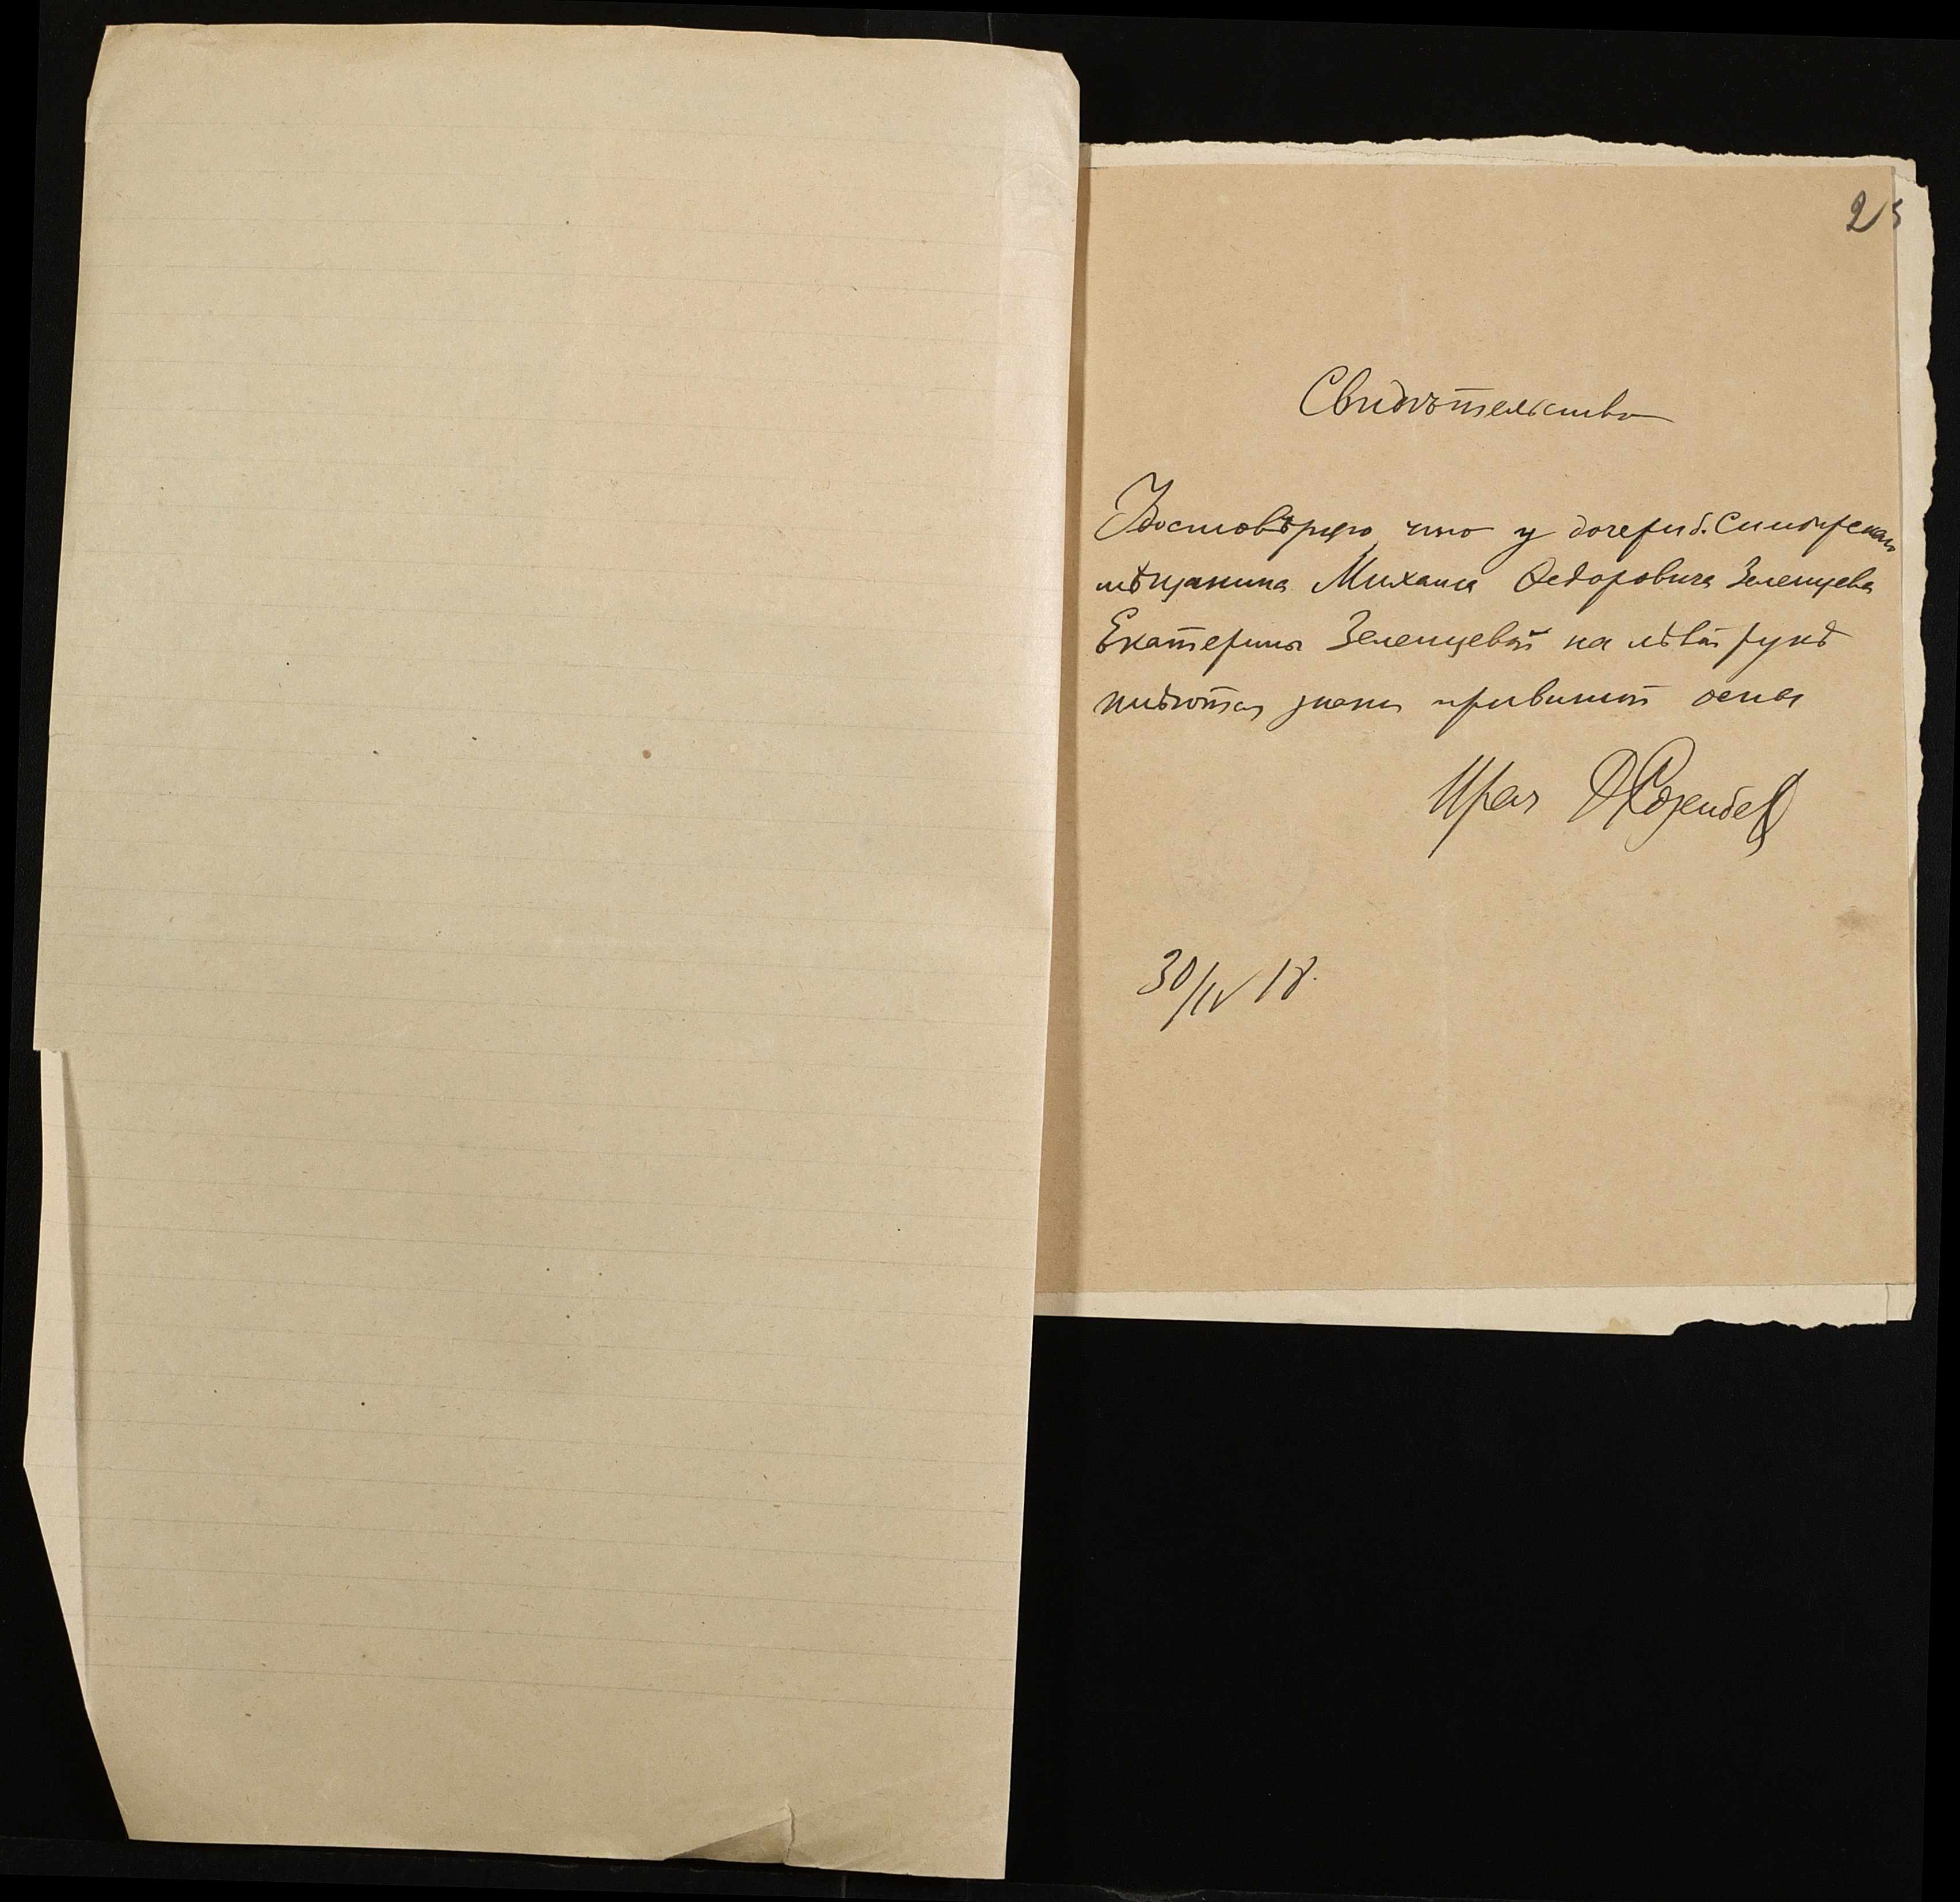 25
Свидѣтельство
Удостовѣряю, что у дочери б. Симбирскаго
мѣщанина Михаила Федоровича Зеленцева
Екатерины Зеленцевой на лѣвой рукѣ
имѣются знаки привитой оспы
Врач
30/IV 18.